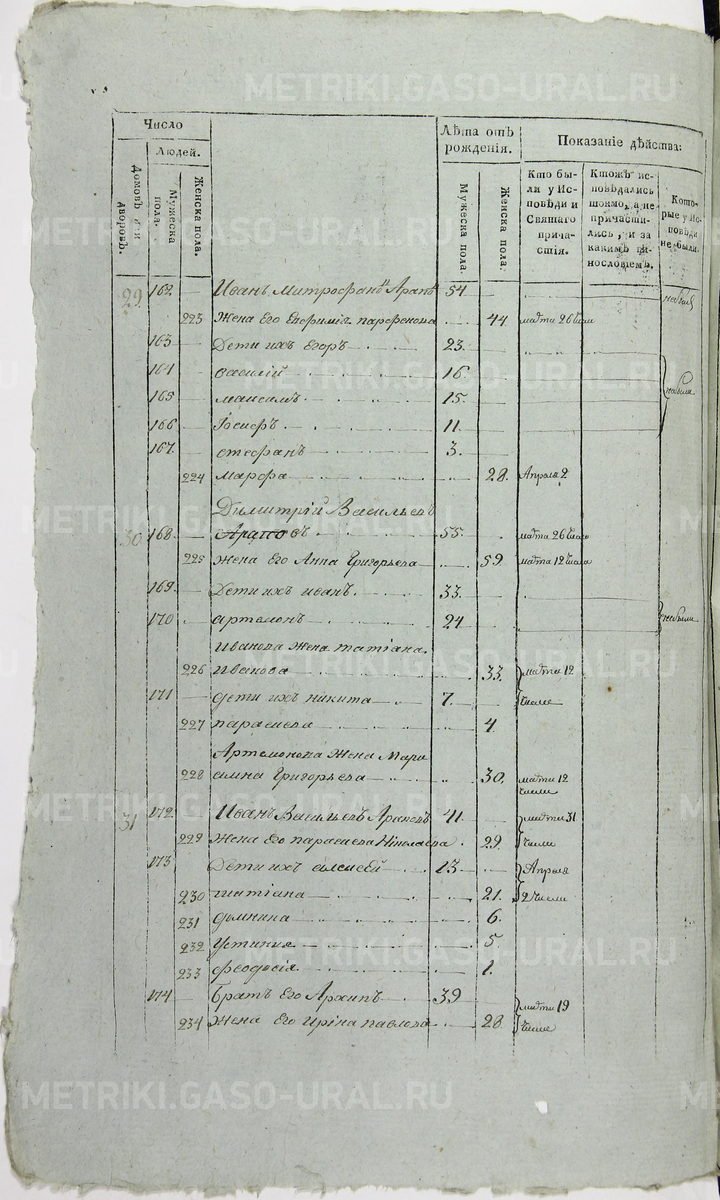 METRIKI.GASO-URAL.RU
Число
Людей.
Домовъ или дворовъ.
Мужеска пола.
Женска пола.
Лѣта отъ рожденія.
Мужеска пола
Женска пола.
Показаніе дѣйства:
Кто бы-
ли у Ис-
повѣди и
Святаго
прича-
стія.
Ктожъ ис-
повѣдались
токмо, а не
причасти-
лись, и за
какимъ ви-
нословіемъ.
Кото-
рые у Ис-
повѣди
не были.
29 162 Иванъ Митрофанъ Арапъ 54
223 Жена Его Евфимія парфенова 44 марта 26 числ
163 Дети ихъ Егоръ 23.
164 василій 16.
165 максимъ 15.
небыли
166 Іосифъ 11.
167 стефанъ 3.
224 Марфа 28. Апреля 2
Димитрій Васильевъ
30 168 Араповъ 55. марта 26 числа
225 Жена Его Анна Григорьева 59. марта 12 числа
169 Дети ихъ иванъ. 33.
170 артемонъ 24 небыли
Иванова Жена татіана
226 Иванова 33. марта 12
171 дети ихъ никита 7. числ
227 параскева 4.
Артемонова Жена Мари
228 амна Григорьева 30. марта 12
числ
31 172 Иванъ Васильевъ Араповъ 41. марта 31
229 Жена Его параскева Николаева 29. числ
173 Дети ихъ алексей 13 Апреля
230 татіана 21. 2 числ
231 домнина 6.
232 Устинія 5.
233 феодосія 1.
174 Братъ Его Архипъ 39 марта 19
234 Жена Его Иріна павлова 28. числ